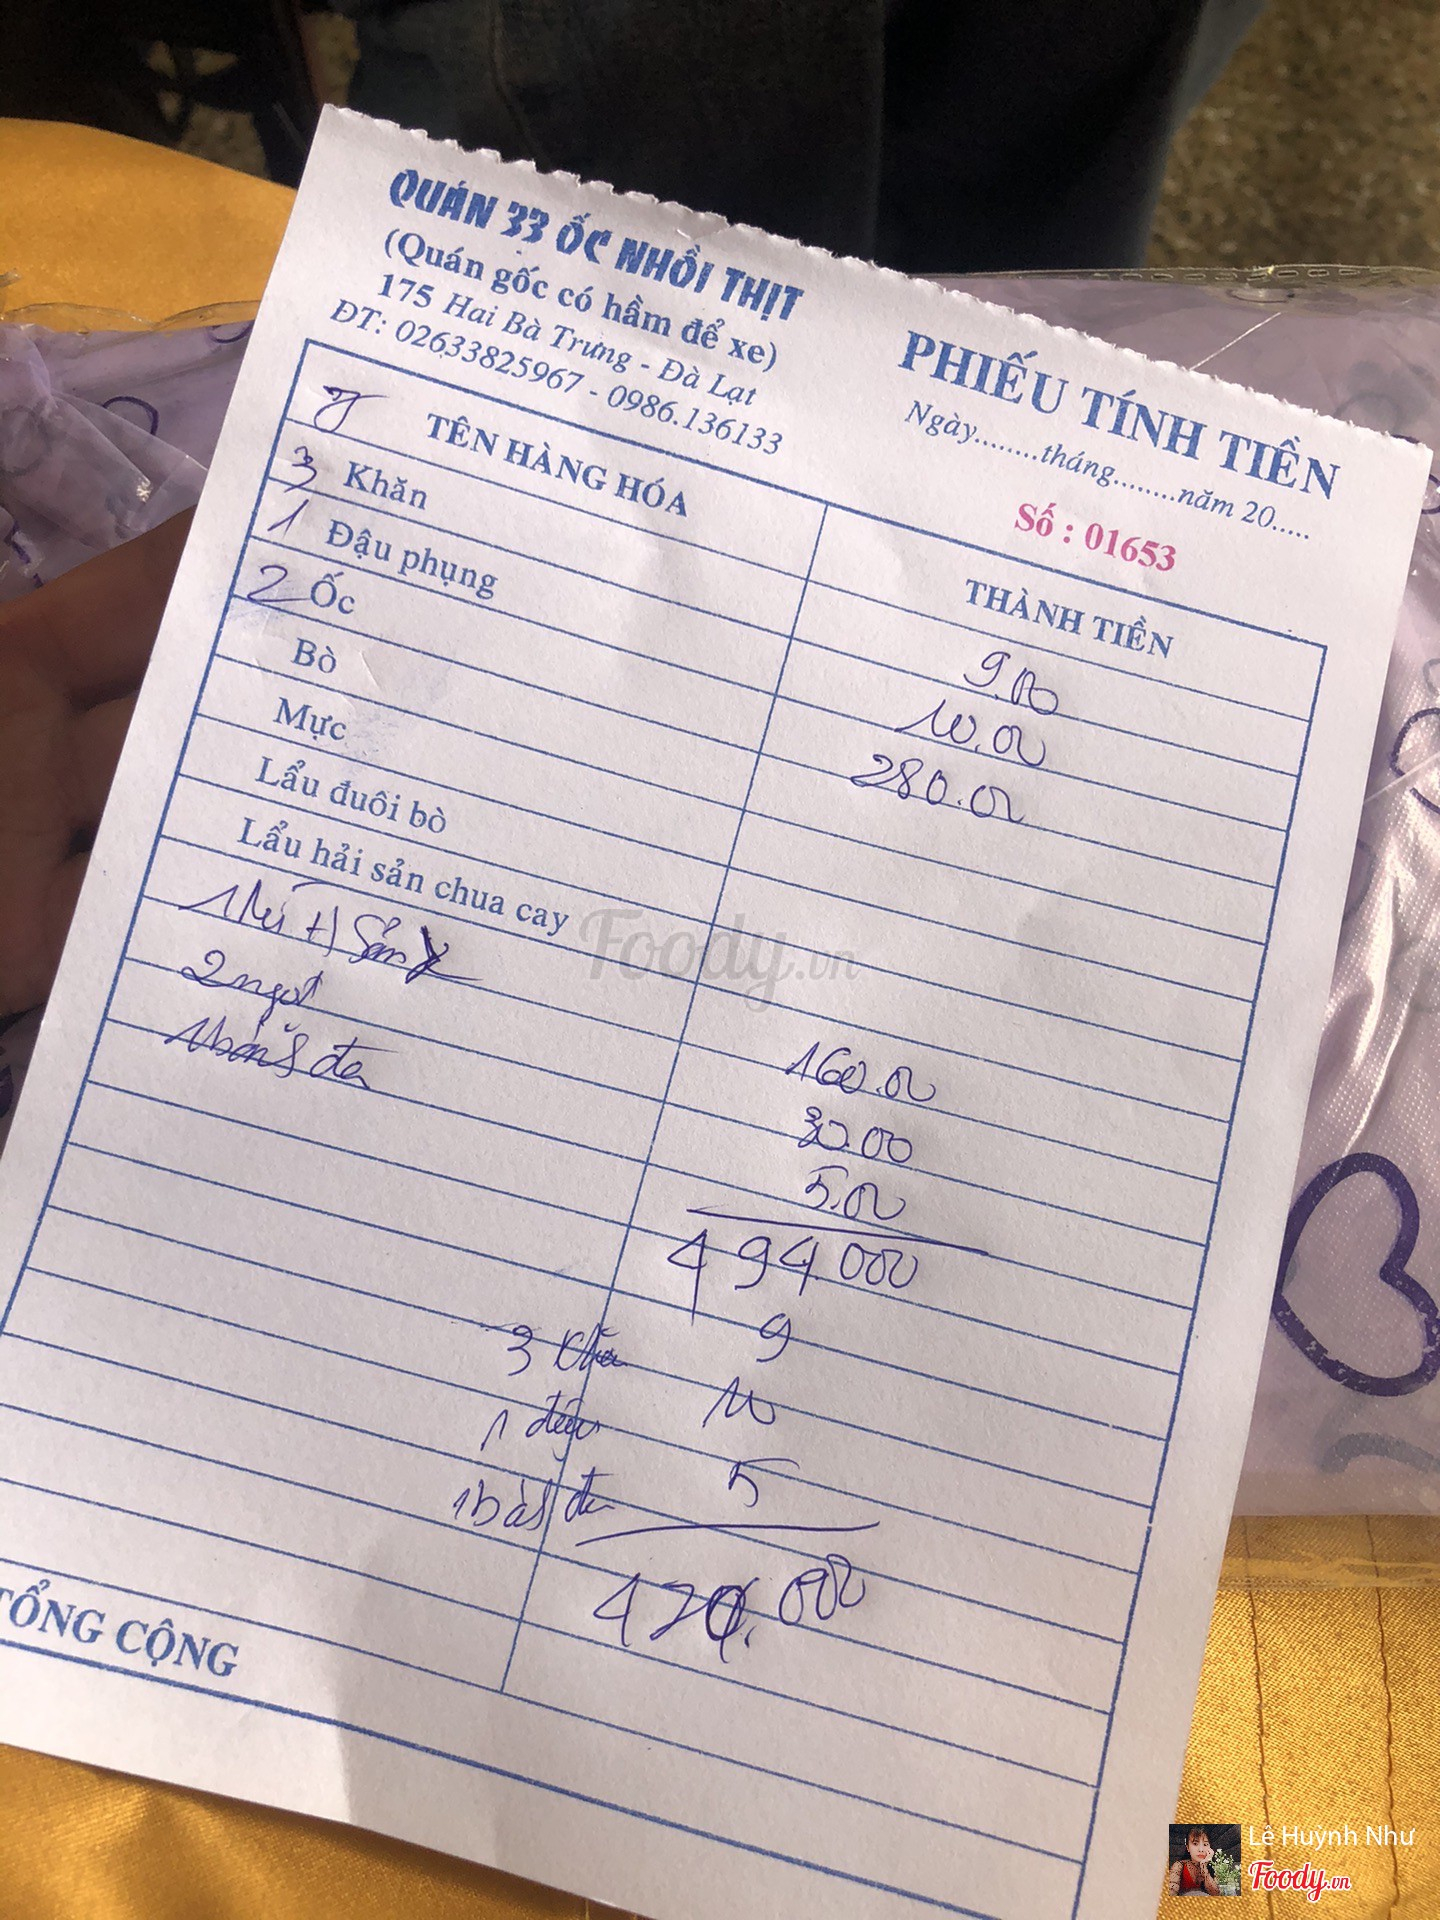 QUÁN 33 ỐC NHỒI THỊT
(Quán gốc có hầm để xe)
175 Hai Bà Trưng - Đà Lạt
ĐT: 02633825967 - 0986.136133
PHIẾU TÍNH TIỀN
Ngày........tháng........năm 20.....
Số : 01653
7 TÊN HÀNG HÓA THÀNH TIỀN
3 Khăn 9.00
1 Đậu phụng 10.00
2 Ốc 280.00
Bò
Mực
Lẩu đuôi bò
Lẩu hải sản chua cay
1 160.00
2 ngọt 30.00
1 đá 5.00
494.000
3 9
1 đậu 10
1 đá 5
.000
TỔNG CỘNG
Foody.vn
Lê Huỳnh Như
Foody.vn